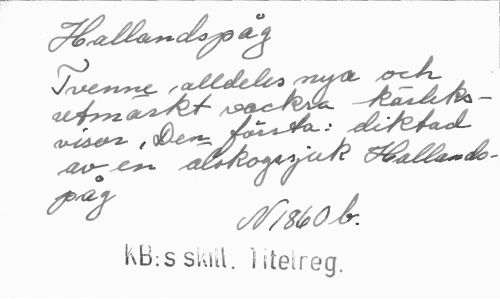 Hallandspåg
Tvenne, alldeles nya och
utmärkt vackra kärleks-
visor, Den första: diktad
av en älskogssjuk Hallands-
påg
N 1860 b.
KB:s skill. Titelreg.